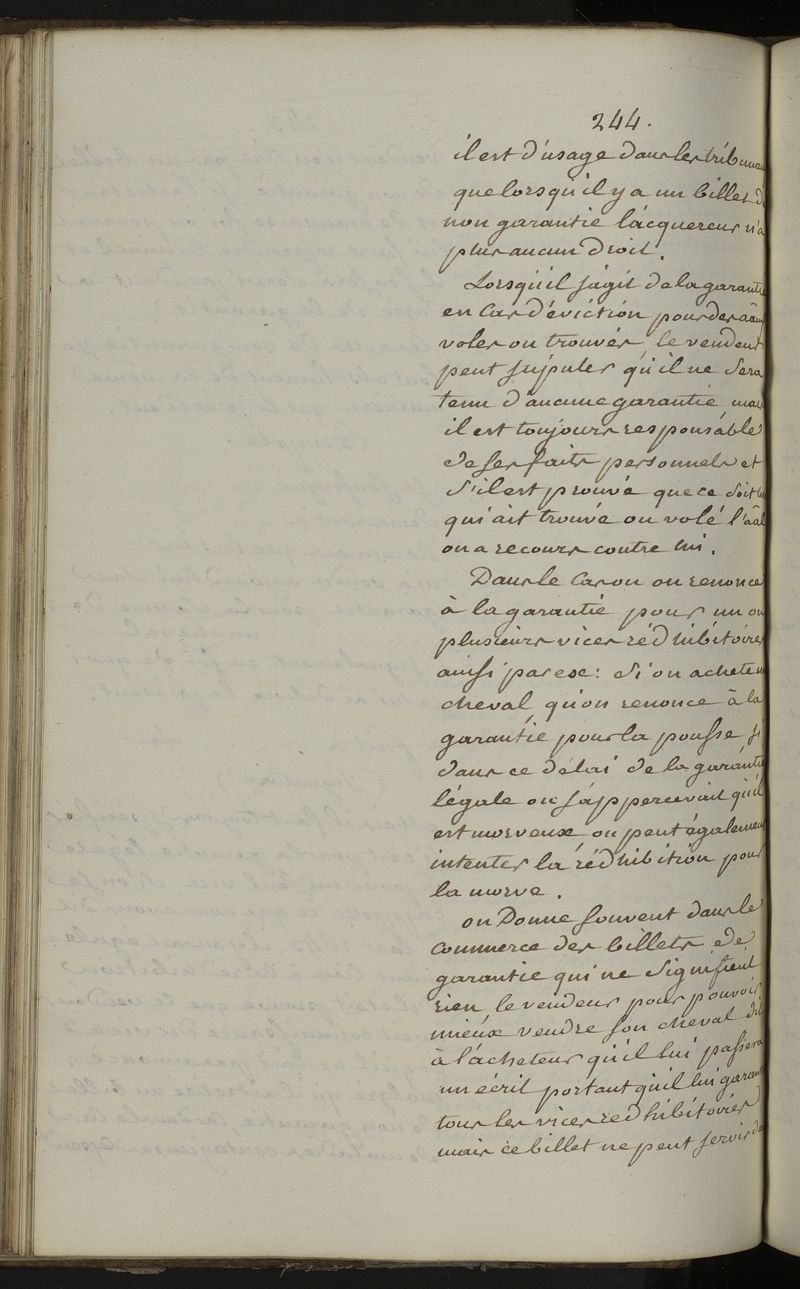 244.
il est d'usage dans les tribunau
que lorsqu'il y a un billet d
non garantie l'acquereur n'a
plus aucun droit.
Lorsqu'il s'agit de la garantie
en Cas d'éviction pour des aâu
volés ou trouvés, le vendeur
peut stipuler qu'il ne Sera
tenu d'aucune garantie, mais
il est toujours responsable
de ses faits personnels et
S'il est prouvé que ce Soit lu
qui ait trouvé ou volé l'aâl
on a recours contre lui.
Dans le Cas ou on renonce
à la garantie pour un ou
plusieurs vices rédhibitoires
ainsi par ex: Si on achete un
cheval qu'on renonce à la
garantie pour la pousse si
dans ce délai de la garantie
légale on s'appercevait qu'il
est morveux on peut également
intenter la rédhibition pour
la morve.
on Donne souvent dans le
Commerce des billets de
garantie qui ne Signifient
rien, le vendeur pour pouvoir
mieux vendre son cheval dit
à l'acheteur qu'il lui passera
un écrit portant qu'il lui garant
tous les vices redhibitoires
mais ce billet ne peut servir da